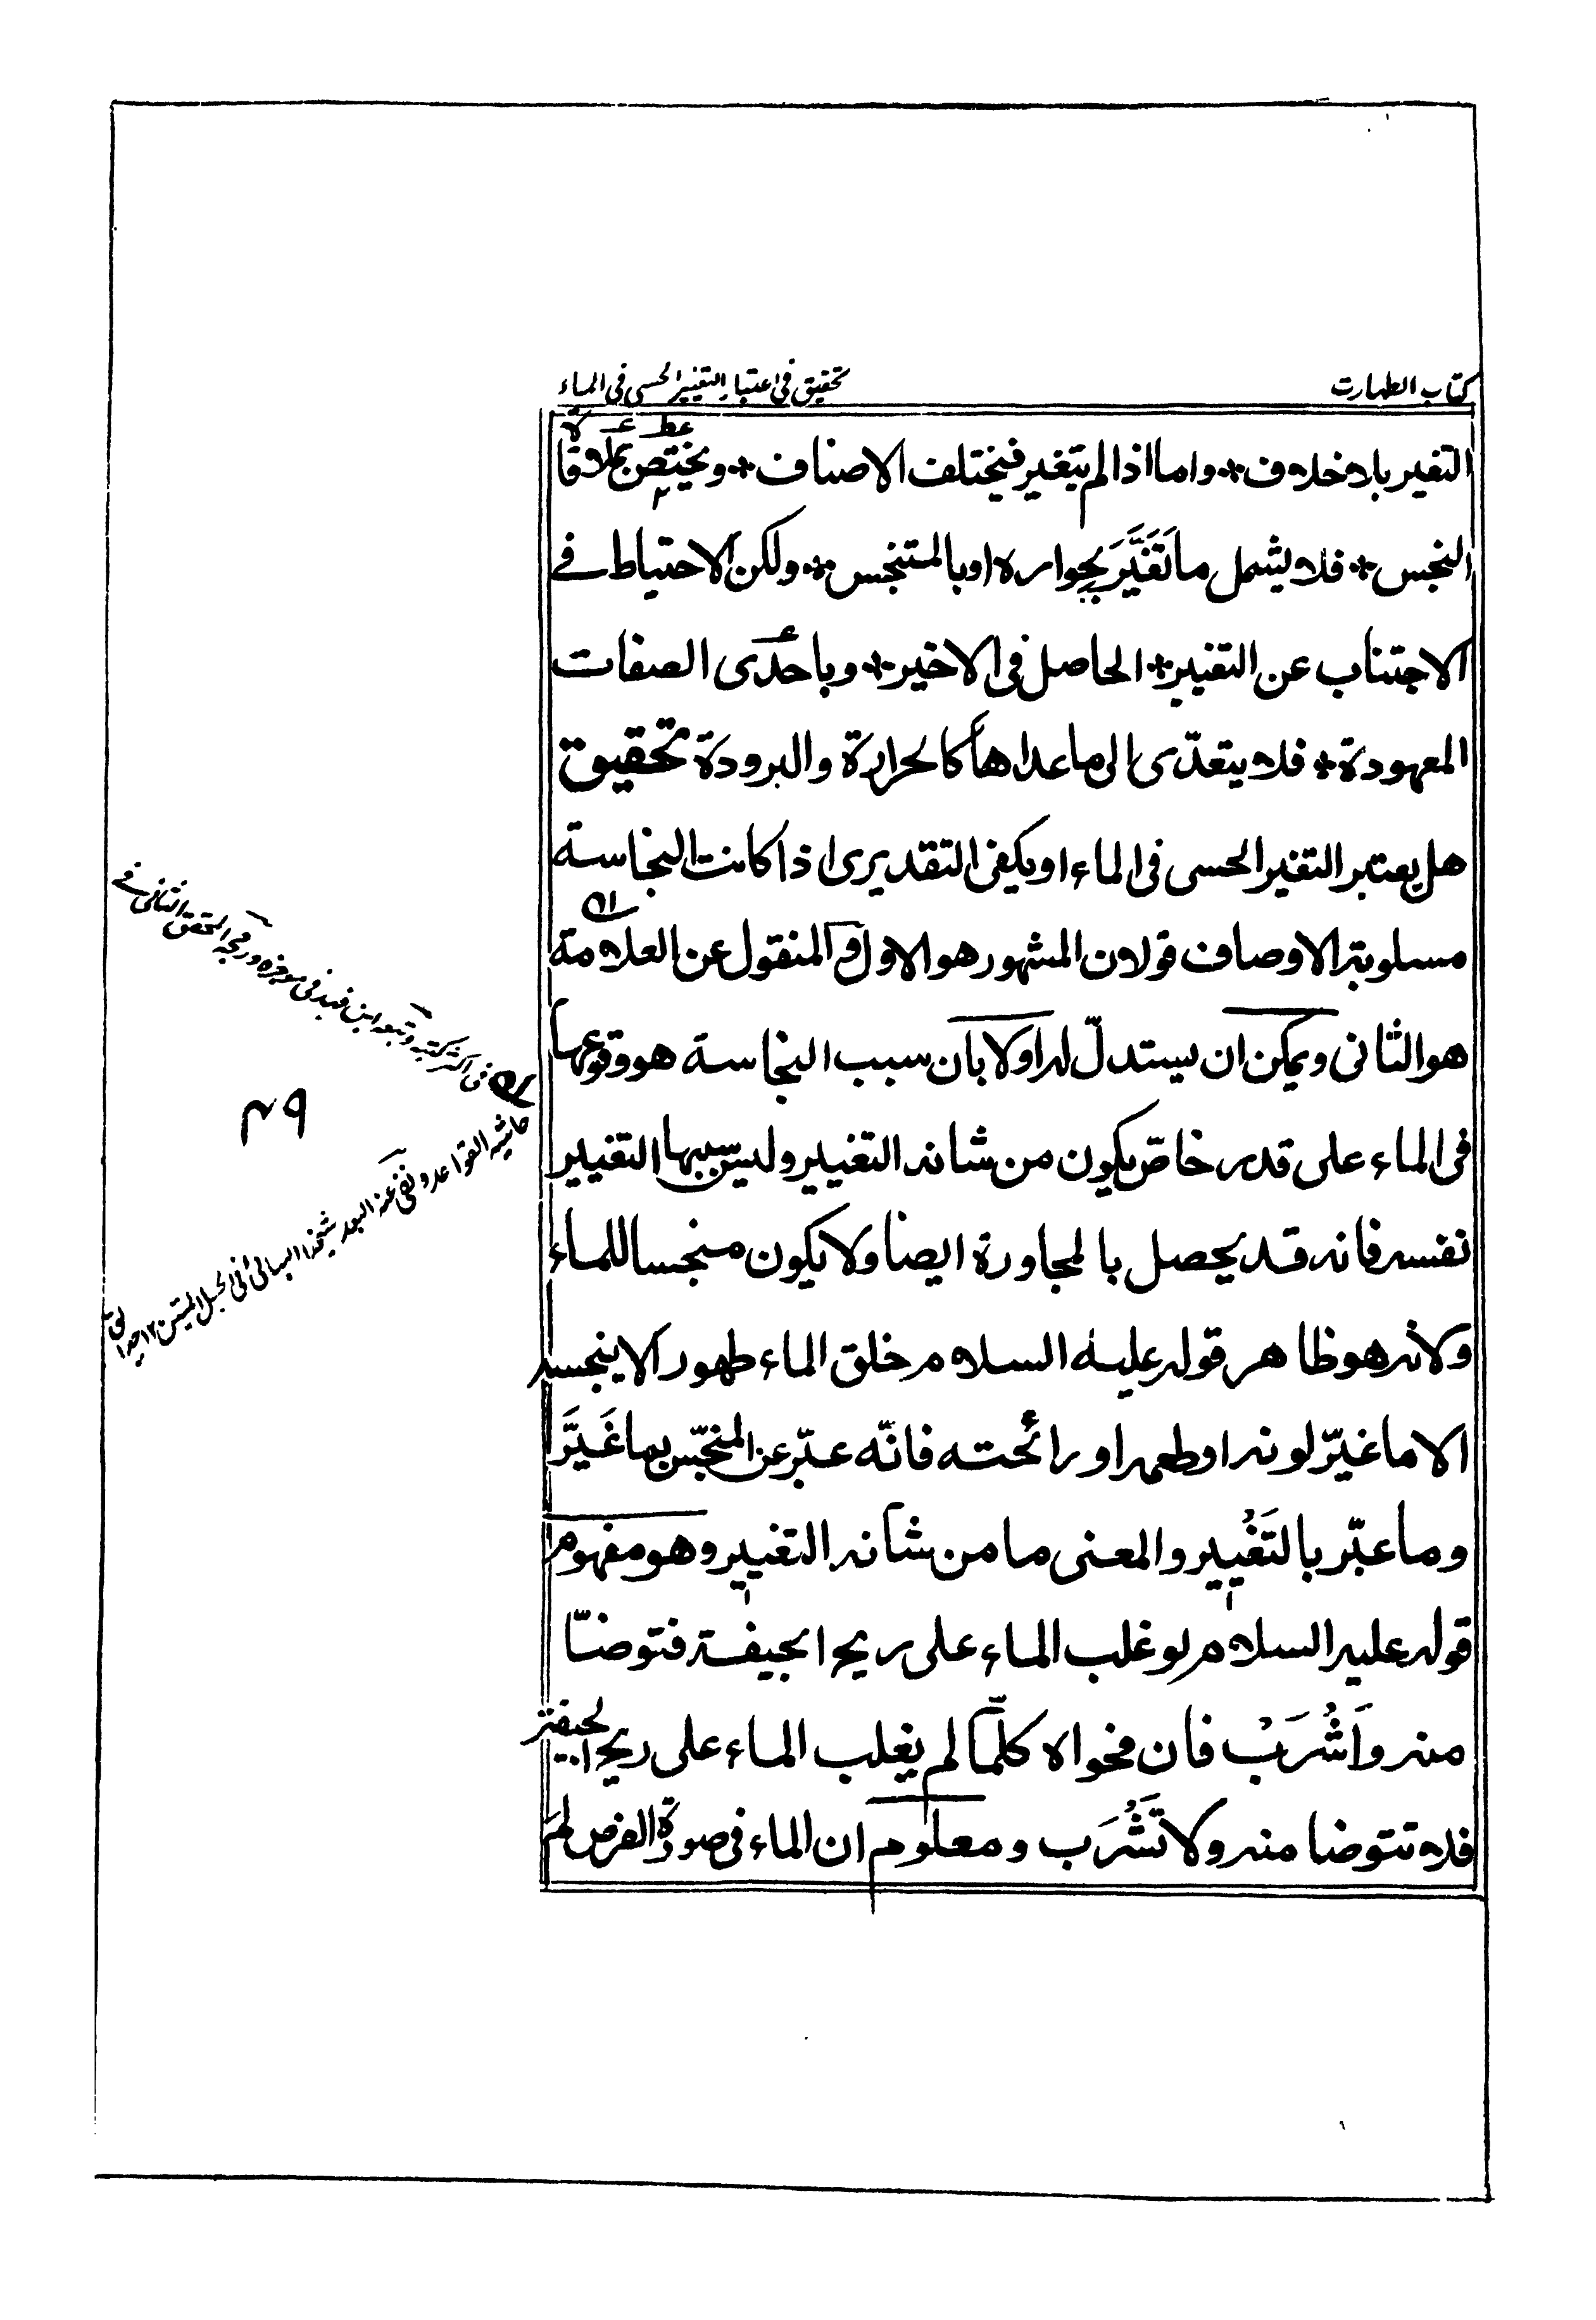 كتاب الطهارت
تحقيق فى اعتبار التغيير الحسى فى الماء
التغير بلا خلاف * واما اذا لم يتغير فيختلف الاصناف * ويختص بملاقا
النجس * فلا يشمل ما تَغَيَّرَ بجواره او بالمتنجس * ولكن الاحتياط فے
الاجتناب عن التغير * الحاصل فى الاخير * وباحدى الصفات
المعهودة * فلا يتعدّى الى ما عداها كالحرارة والبرودة تحقيق
هل يعتبر التغير الحسى فى الماء او يكفى التقديرى اذا كانت النجاسة
مسلوبة الاوصاف قولان المشهور هو الاول والمنقول عن العلامة
هو الثانى ويمكن ان يستدلّ له اولا بان سبب النجاسة هو وقوعها
فى الماء على قدر خاصّ يكون من شانه التغيير وليس سببها التغيير
نفسه فانه قد يحصل بالمجاورة ايضا ولا يكون منجسا للماء
ولانه هو ظاهر قوله عليه السلام خلق الماء طهورا لا ينجسه
الا ما غيّر لونه او طعمه او رائحته فانّه عبّر عن المنجّس بما غَيَّرَ
وما عبّر بالتَغْيير والمعنى ما من شانه التغيير وهو مفهوم
قوله عليه السلام لو غلب الماء على ريح الجيفة فتوضّا
منه واَشْرَبْ فان فحواه كلّما لم يغلب الماء على ريح الجيفة
فلا تتوضا منه ولا تَشْرَب ومعلوم ان الماء فى صورة الفرض لم
فى اكثر كتبه وتبعه ابن فهد فى موجزه ورجحه المحقق الثانى فے
حاشيه القواعد ونفى عنه البعد شيخنا البهائى فى الحبل المتين ١٢
٤٩